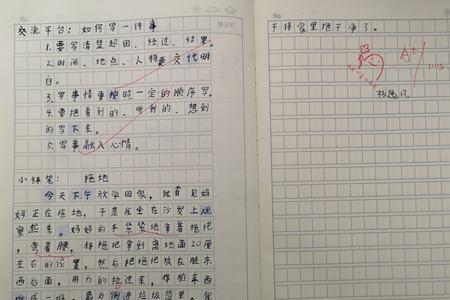 No.
交流平台：如何写一件事
1.要写清楚起因、经过、结果。
2.时间、地点、人物要交代明
白。
3.写事情要按照一定的顺序写。
4.要把看到的、听到的、想到
的写下来。
5.写事融入心情。
小练笔： 拖地
今天下午放学回家，我看见妈
妈正在拖地，于是我坐在沙发上观
察起来。妈妈的手紧紧地拿着拖把，
弯着腰，将拖把拿到离地面20厘
左右的位置，然后把拖把放在脏东
西后面，用力的拉过来，将脏东西
No.
于将家里拖干净了。
A+